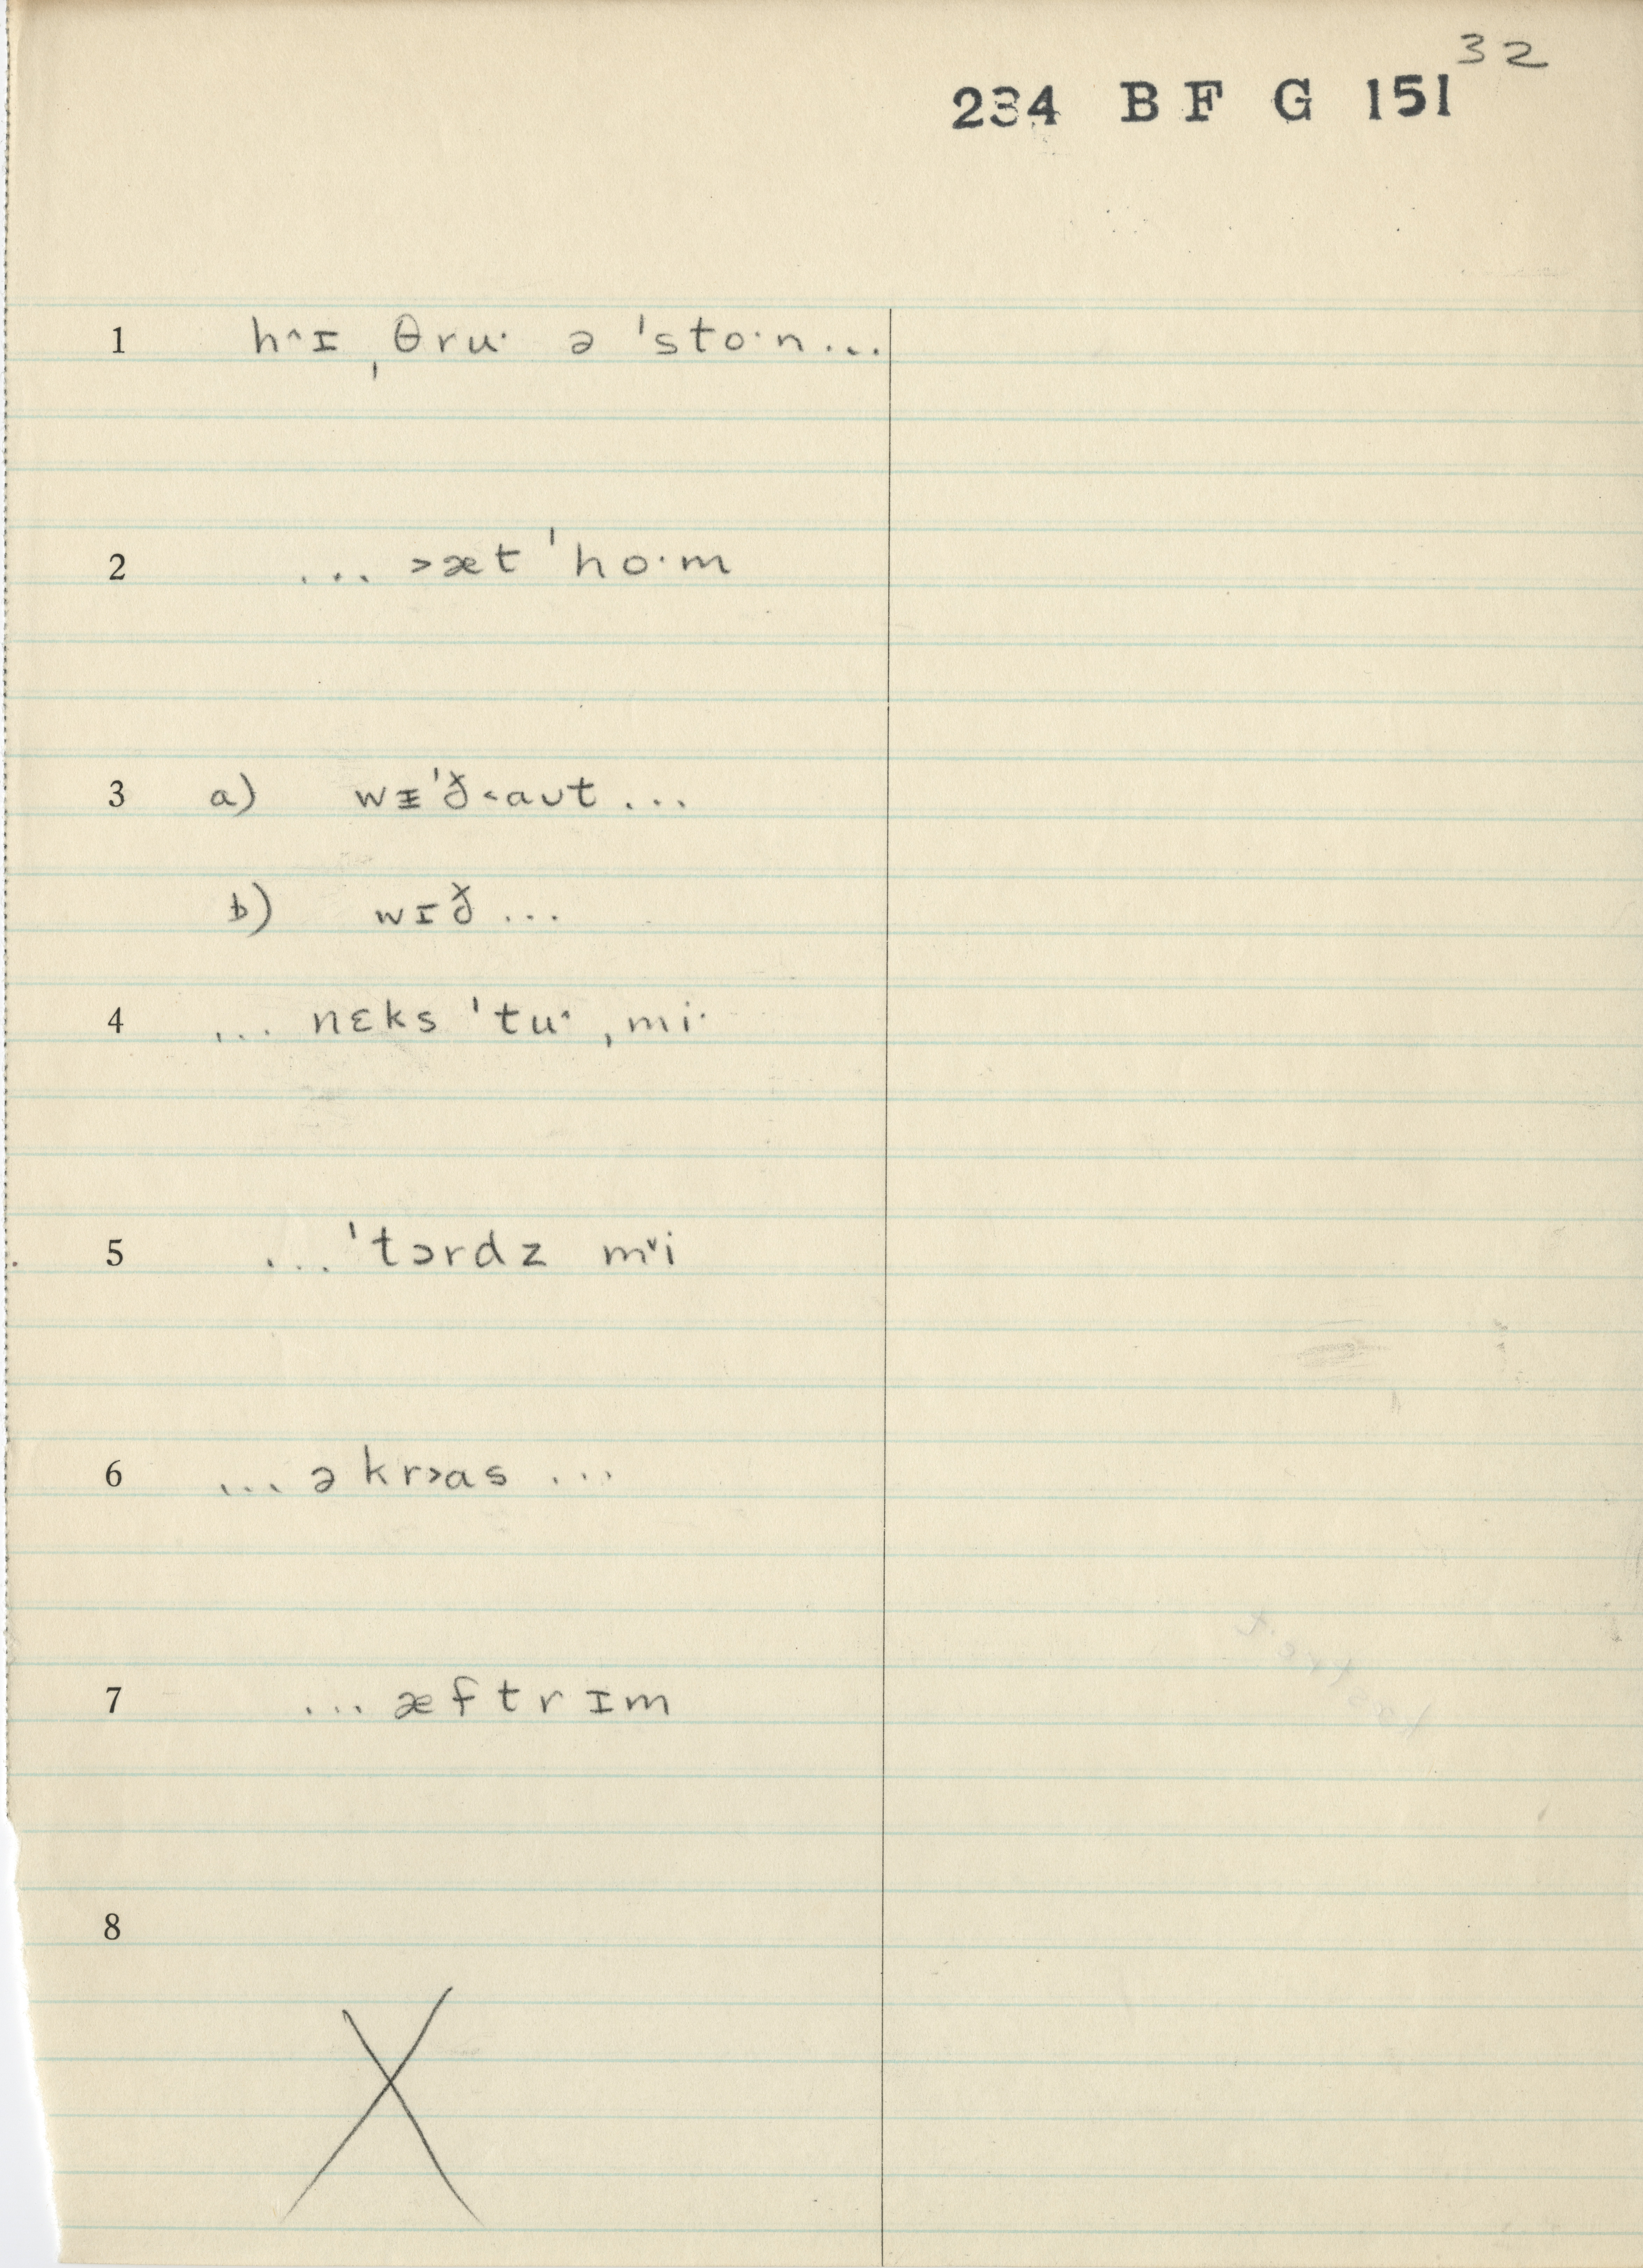 32
234 B F G 151
1 h^ɪ ˌθruˑ ə ˈstoˑn...
2 ... >æt ˈhoˑm
3 a) wᵻˈð<aʊt ...
b) wɪð ...
4 ... nɛks ˈtu^ ˌmiˑ
5 ... ˈtərdz m˅i
6 ... ə kr>as ...
7 ... æftrɪm
8
X